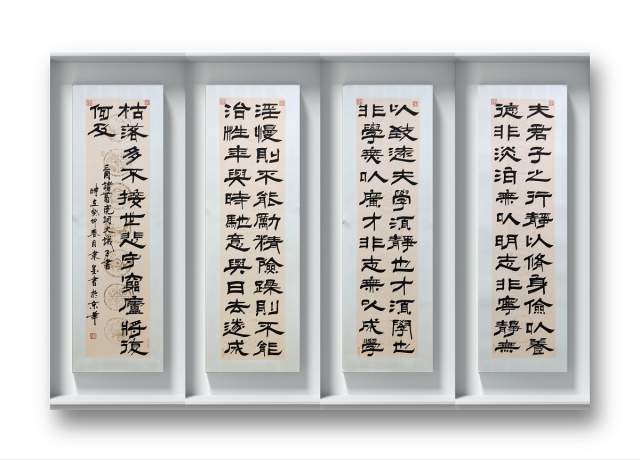 夫君子之行靜以脩身儉以養
德非淡泊無以明志非寧靜無
以致遠夫學須靜也才須學也
非學無以廣才非志無以成學
淫慢則不能勵精險躁則不能
治性年與時馳意與日去遂成
枯落多不接世悲守窮廬將復
何及
三國諸葛亮詞文誡子書
時在癸卯春月 書於京華